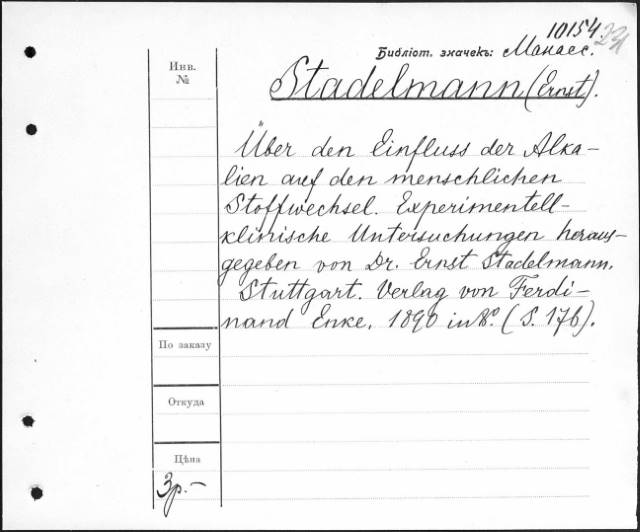 10154
Библіот. значекъ: Манаес.
Инв.
№
Stadelmann (Ernst).
Über den Einfluss der Alka-
lien auf den menschlichen
Stoffwechsel. Experimentell-
klinische Untersuchungen heraus-
gegeben von Dr. Ernst Stadelmann.
Stuttgart. Verlag von Ferdi-
nand Enke, 1890 in 8º. (S. 176).
По заказу
Откуда
Цѣна
3р.-